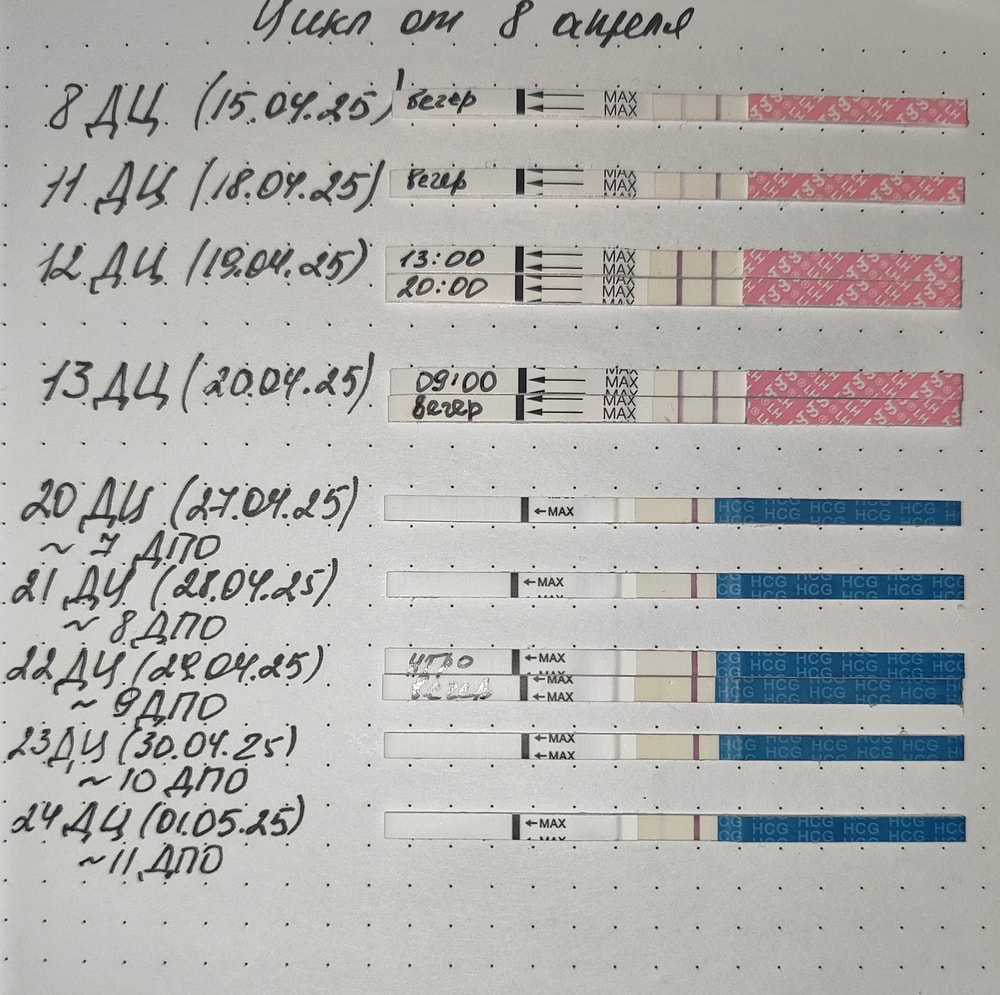 Цикл от 8 апреля
8 ДЦ (15.04.25) вечер MAX MAX LH
11 ДЦ (18.04.25) вечер MAX MAX LH
12 ДЦ (19.04.25) 13:00 MAX MAX LH
20:00 MAX MAX LH
13 ДЦ (20.04.25) 09:00 MAX MAX LH
вечер MAX MAX LH
20 ДЦ (27.04.25) ←MAX HCG HCG HCG HCG HCG HCG
~ 7 ДПО
21 ДЦ (28.04.25) ←MAX HCG HCG HCG HCG
~ 8 ДПО
22 ДЦ (29.04.25) утро ←MAX HCG HCG HCG
вечер ←MAX ←MAX HCG HCG HCG
~ 9 ДПО
23 ДЦ (30.04.25) ←MAX ←MAX HCG HCG HCG HCG
~ 10 ДПО
24 ДЦ (01.05.25) ←MAX HCG HCG HCG HCG
~ 11 ДПО